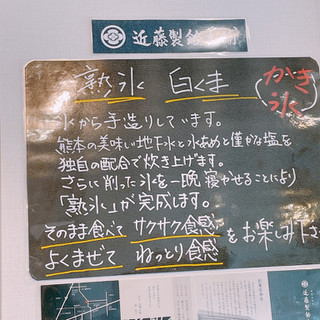 近藤製餡
熟氷 白くま
かき氷
氷から手造りしています。
熊本の美味い地下水と水あめと僅かな塩を
独自の配合で炊き上げます。
さらに削った氷を一晩寝かせることにより
「熟氷」が完成します。
そのまま食べて サクサク食感
よくまぜて ねっとり食感
をお楽しみ下さ
近藤製